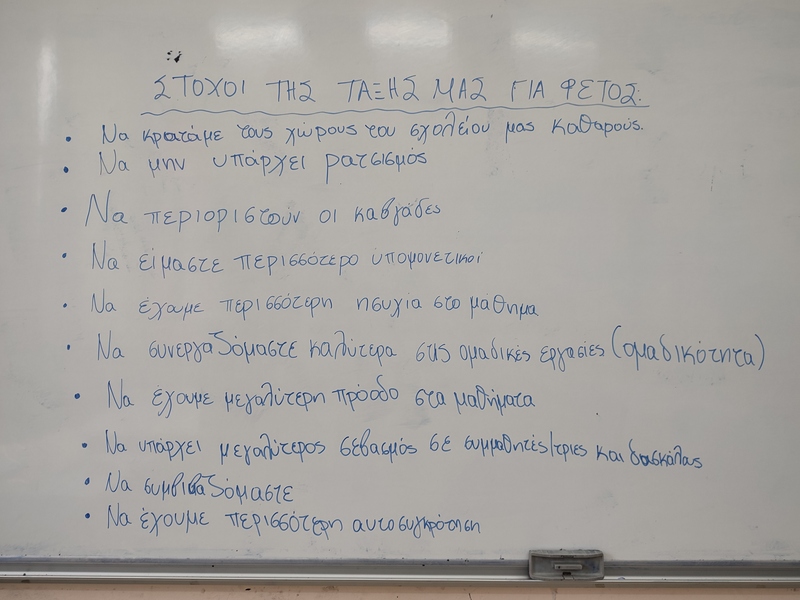 ΣΤΟΧΟΙ ΤΗΣ ΤΑΞΗΣ ΜΑΣ ΓΙΑ ΦΕΤΟΣ:
• Να κρατάμε τους χώρους του σχολείου μας καθαρούς.
• Να μην υπάρχει ρατσισμός
• Να περιοριστούν οι καβγάδες
• Να είμαστε περισσότερο υπομονετικοί
• Να έχουμε περισσότερη ησυχία στο μάθημα
• Να συνεργαζόμαστε καλύτερα στις ομαδικές εργασίες (ομαδικότητα)
• Να έχουμε μεγαλύτερη πρόοδο στα μαθήματα
• Να υπάρχει μεγαλύτερος σεβασμός σε συμμαθητές/τριες και δασκάλας
• Να συμβιβαζόμαστε
• Να έχουμε περισσότερη αυτοσυγκρότηση